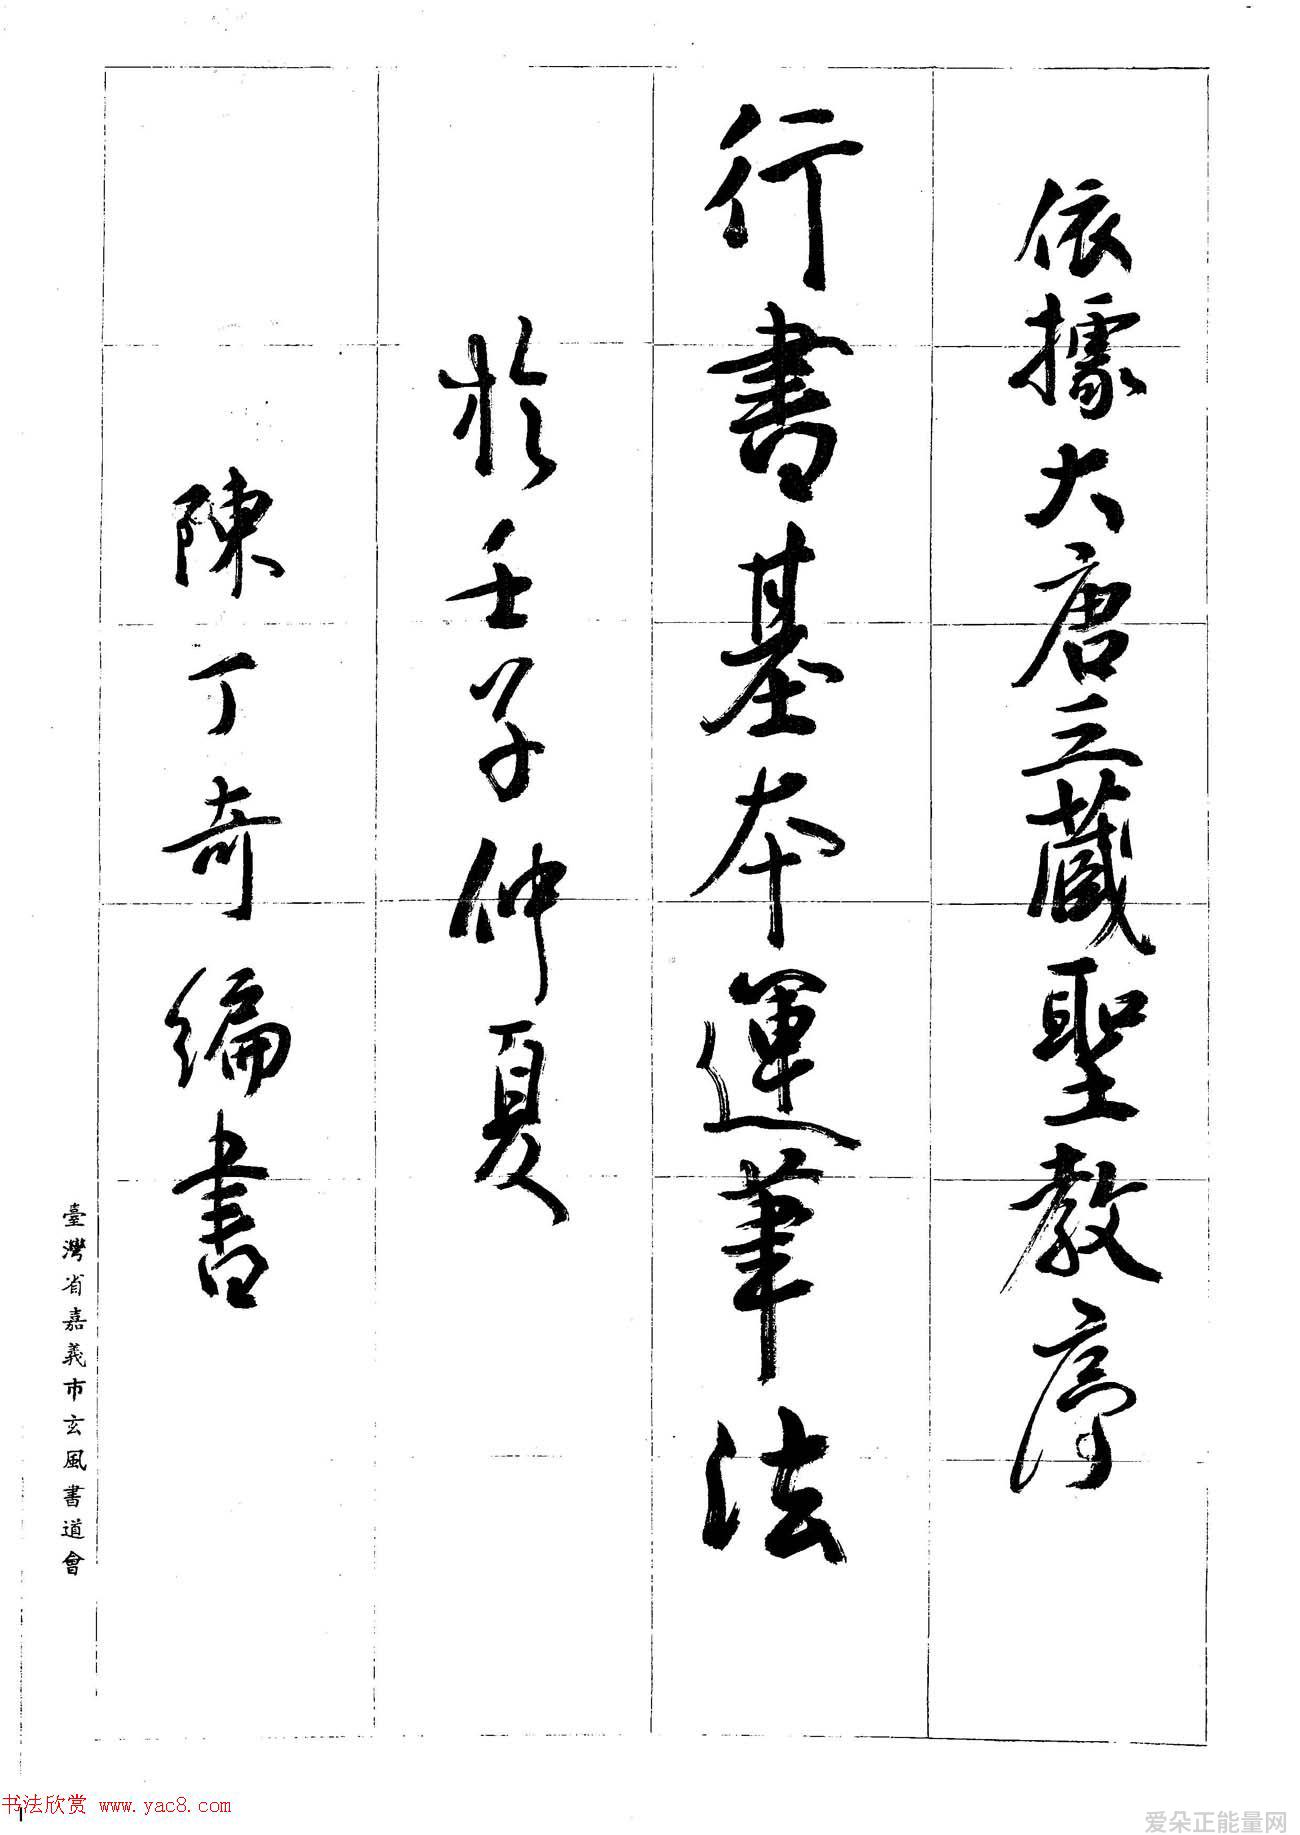 依據大唐三藏聖教序
行書基本運筆法
於壬子仲夏
陳丁奇編書
臺灣省嘉義市玄風書道會
书法欣赏 www.yac8.com
爱朵正能量网